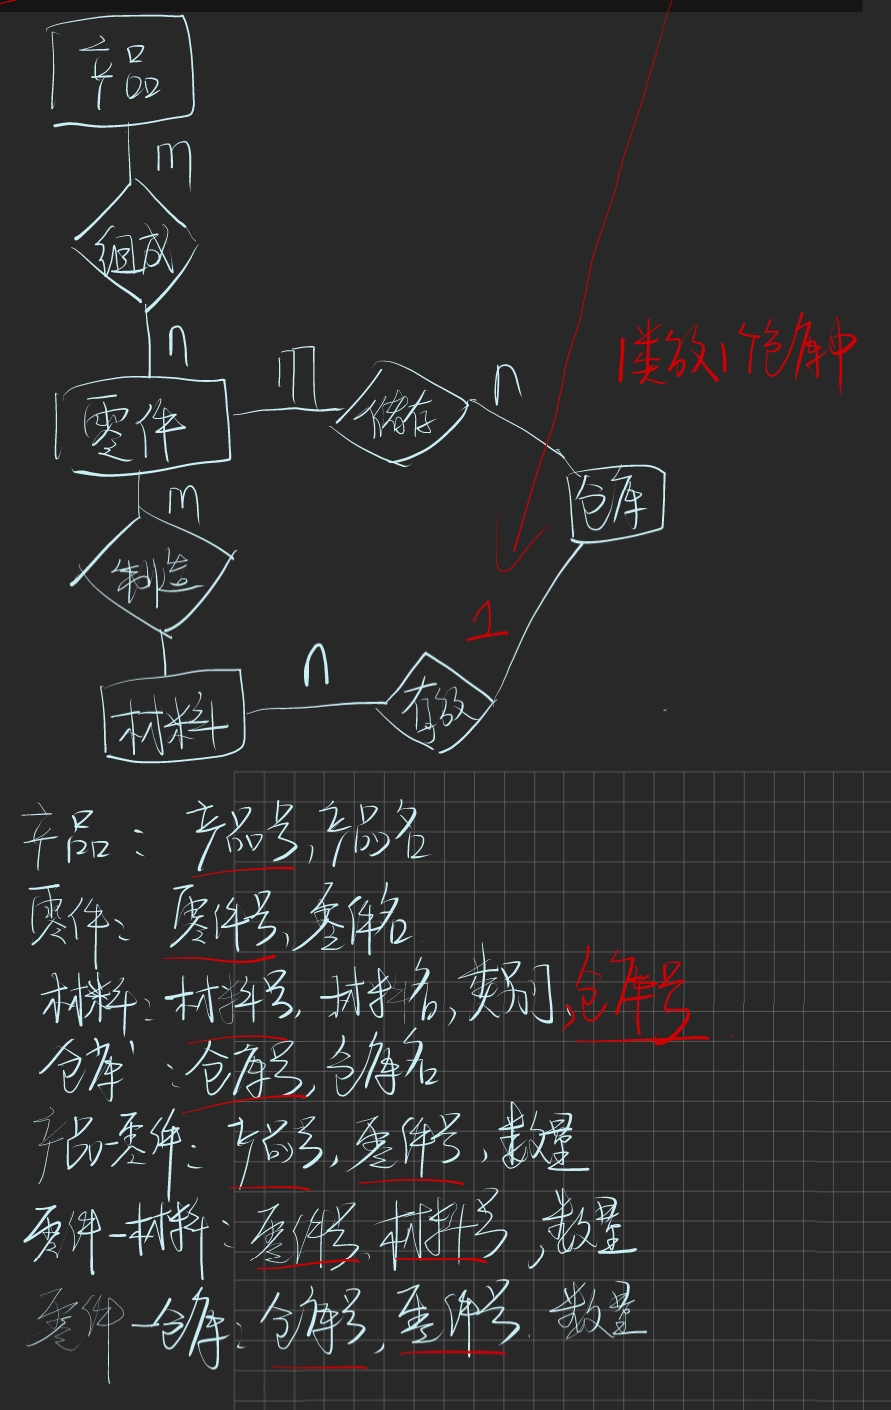 产品
m
组成
n
零件
m
储存
n
仓库
1类放1个仓库中
m
制造
材料
n
存放
1
产品：产品号，产品名
零件：零件号，零件名
材料：材料号，材料名，类别，仓库号
仓库：仓库号，仓库名
产品-零件：产品号，零件号，数量
零件-材料：零件号，材料号，数量
零件-仓库：仓库号，零件号，数量